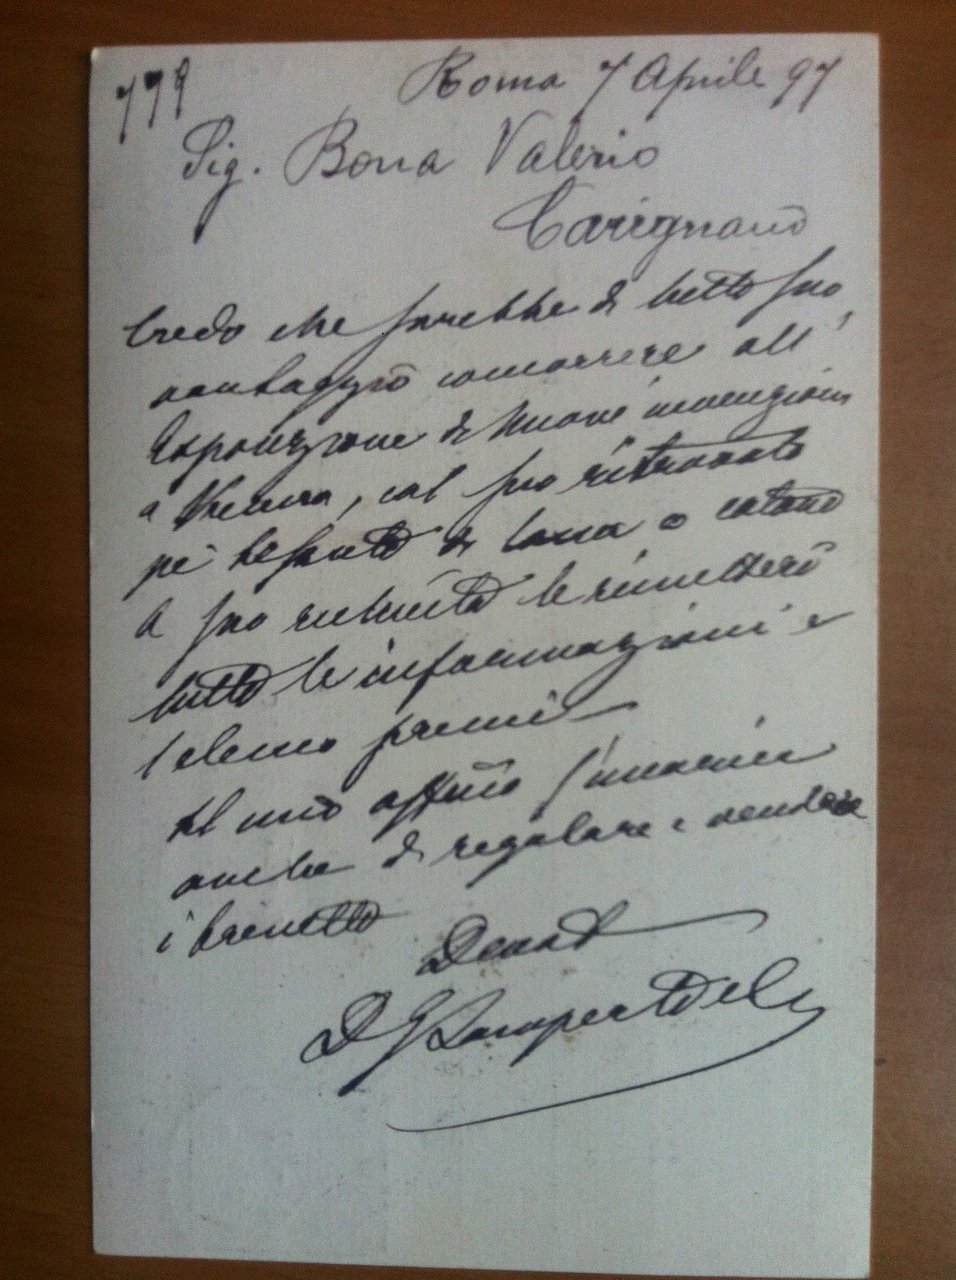 779
Roma 7 Aprile 97
Sig. Bona Valerio
Carignano
Credo che sarebbe di tutto suo
vantaggio concorrere all'
Esposizione di Nuove invenzioni
a Vienna, col suo ritrovato
pei tessuti di lana o cotone
A sua richiesta le rimetterò
tutte le informazioni e
l'elenco premi
Al mio ufficio
anche di regolare e vendere
i brevetti
Devot
D